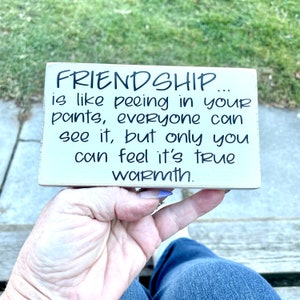 FRIENDSHIP...
is like peeing in your
pants, everyone can
see it, but only you
can feel it's true
warmth.